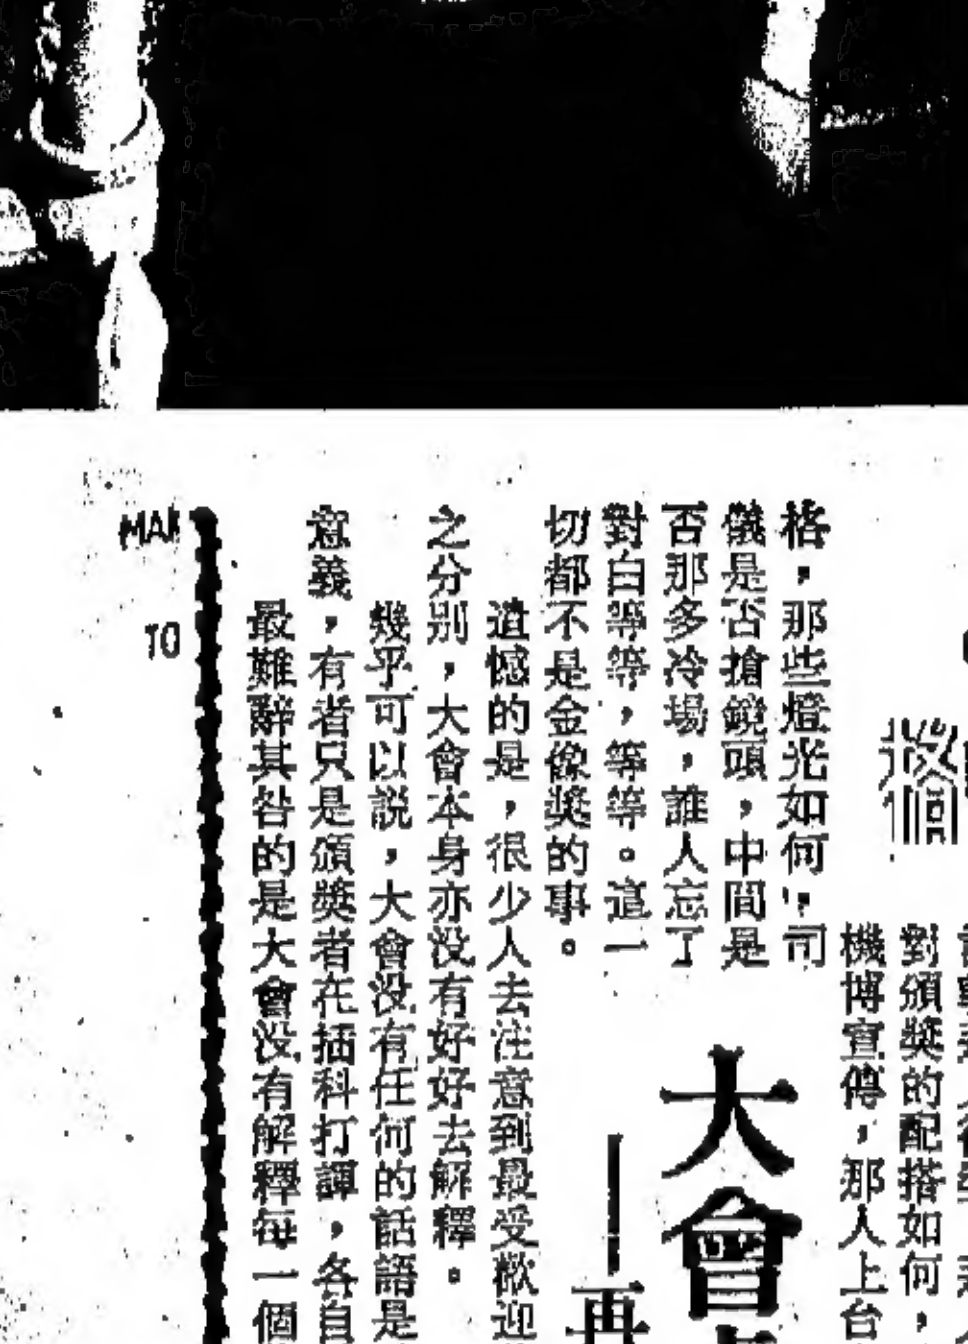 對頒獎的配搭如何，
機博宣傳，那人上台
格，那些燈光如何，司
儀是否搶鏡頭，中間是
否那多冷場，誰人忘了
對白等等，等等。這一
切都不是金像獎的事。
大會
再
遺憾的是，很少人去注意到最受歡迎
之分別，大會本身亦没有好好去解釋。
幾乎可以説，大會没有任何的話語是
意義，有者只是頒獎者在插科打諢，各自
最難辭其咎的是大會没有解釋每一個
MAR
TO